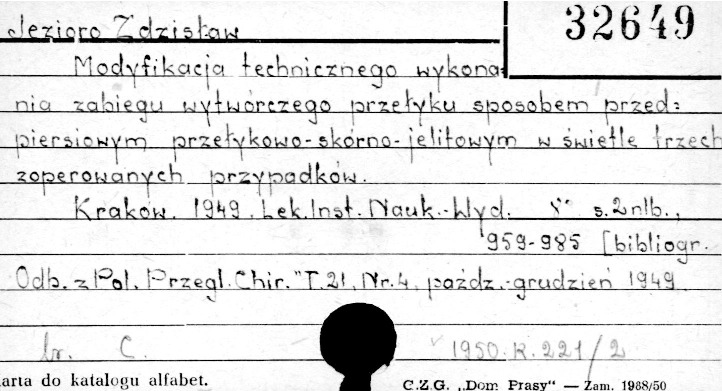 Jezioro Zdzisław
32649
Modyfikacja technicznego wykona=
nia zabiegu wytwórczego przełyku sposobem przed=
piersiowym przełykowo-skórno-jelitowym w świetle trzech
zoperowanych przypadków.
Kraków. 1949. Lek. Inst. Nauk.-Wyd. 8° s. 2 nlb.,
959-985 [bibliogr.
Odb. z Pol. Przegl. Chir." T. 21, Nr. 4, paźdz.-grudzień 1949.
br. C. 1950. K. 221/2
arta do katalogu alfabet.
C.Z.G. „Dom Prasy" — Zam. 1988/50